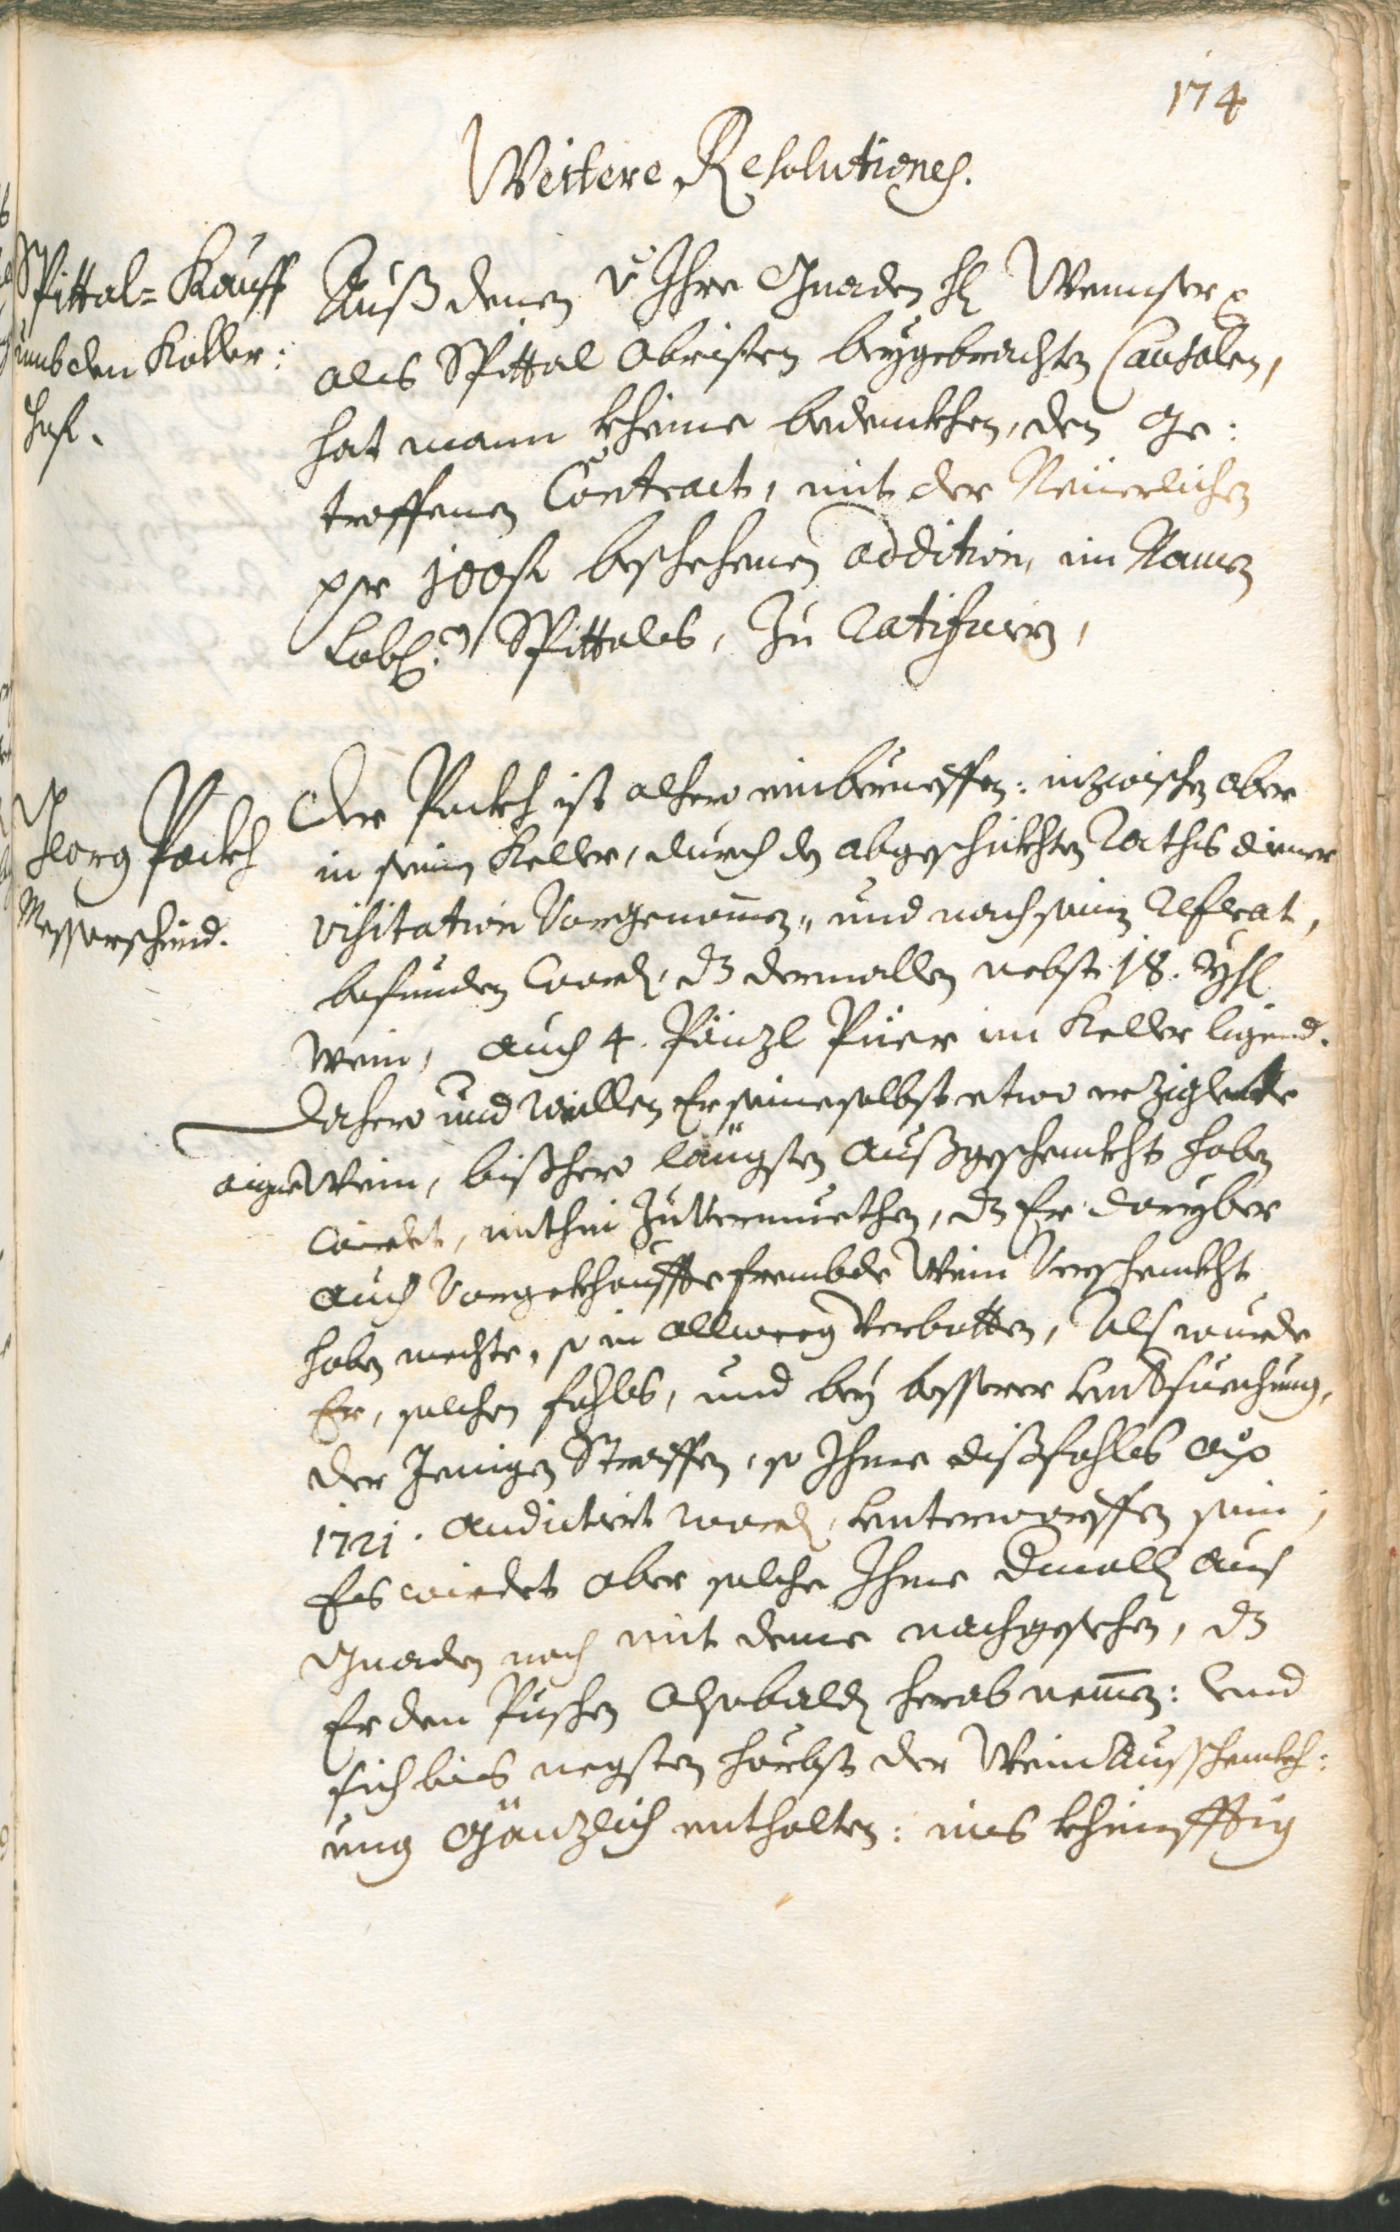 174
Weitere Resolutiones.
Spittal-Kauff
umb den Koller:
hof.
Auß denen v Ihre Gnaden H: Wenser
als Spittal obristen beygebrachten Causalen,
hat mann kheine bedenckhen, den ge:
troffenen Contract, mit der Neuerlichen
per 100 fl beschehenen addition, im Namen
Lobl: Spittals, zu ratificiern,
Georg Päckh
Messerschmid.
Der Päckh ist alhero einberueffen: inzwischen aber
in seinen Keller, durch den abgeschickhten Raths diener
visitation vorgenommen, und nach seinen Referat,
befunden word, dz dermallen nebst 18. Yhl
Wein, auch 4. Pänzl Pier im Keller ligend.
Dahero und weillen Er seine selbst etwo erziglete
aigne Wein, bißhero längsten außgeschenckht haben
wirdet, mithin zu vermuethen, dz Er daryber
auch vorgekhauffte frembde Wein verschenckht
haben mechte, so in allweeg verbotten, Als wurde
Er, solchen fahls, und bey besserer undersuechung,
der Jenigen Straffen, so Ihme dißfahls ao
1721. andictiert word, unterworffen sein;
Es wirdet aber solche Ihme dmall aus
Gnaden noch mit deme nachgesehen, dz
Er den Puschen alsobald herab nemmen: und
sich bis negsten Hörbst der Wein Ausschenckh:
ung gänzlich enthalten: ins khinfftig